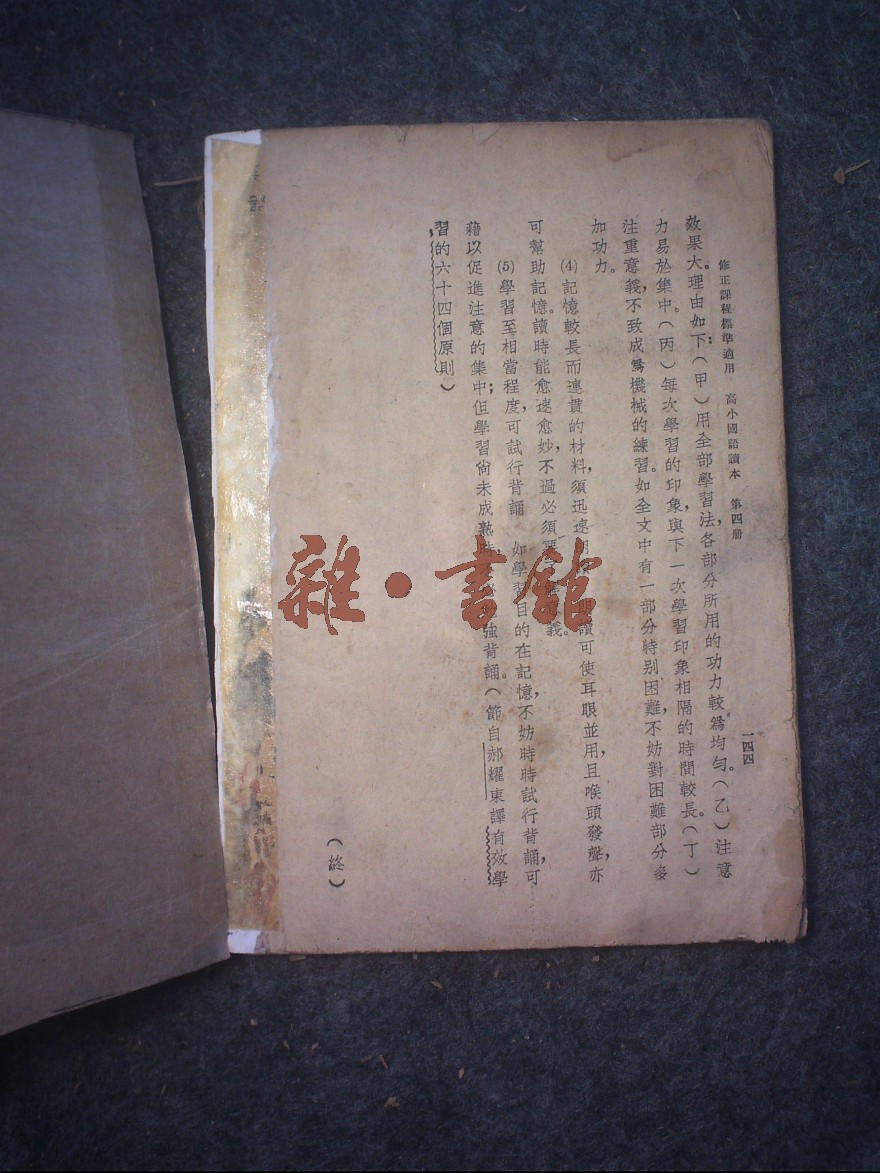 修正課程標準適用　高小國語讀本　第四册
一四四
效果大。理由如下：（甲）用全部學習法，各部分所用的功力較爲均勻。（乙）注意
力易於集中。（丙）每次學習的印象，與下一次學習印象相隔的時間較長。（丁）
注重意義，不致成爲機械的練習。如全文中有一部分特别困難，不妨對困難部分多
加功力。
⑷記憶較長而連貫的材料，須迅速 讀可使耳眼並用，且喉頭發聲，亦
可幫助記憶。讀時能愈速愈妙，不過必須 義。
⑸學習至相當程度，可試行背誦　如學習目的在記憶，不妨時時試行背誦，可
藉以促進注意的集中；但學習尚未成熟 強背誦。（節自郝耀東譯有效學
習的六十四個原則）
（終）
雜·書館